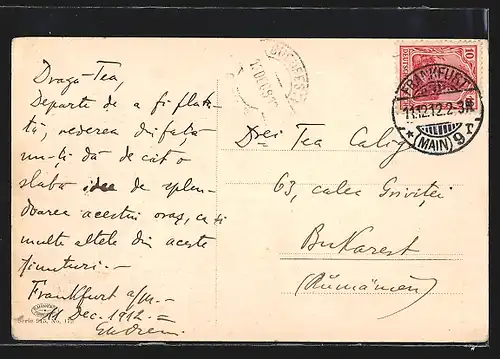 Dragă-Tea,
Departe de a fi flata-
tă, vederea din față
nu-ți dă de cât o
slabă idee de splen-
doarea acestui oraș, ca și
multe altele din aceste
ținuturi.-
Frankfurt a/M.-
11 Dec. 1912-
Tea Calig
63, calea Griviței
Bukarest
(Rumänien)
FRANKFURT
11.12.12.2-3N
* (MAIN) 9 r
10
BUCUREȘTI
Serie 945. No.